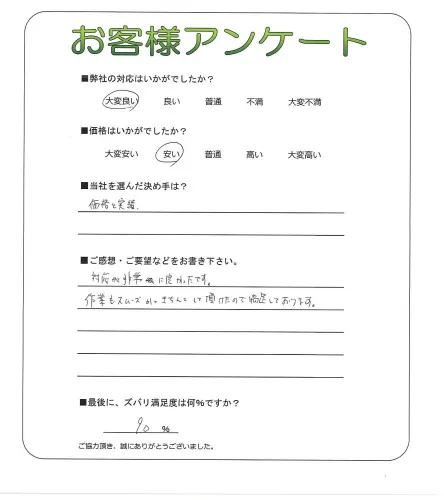 お客様アンケート
■弊社の対応はいかがでしたか？
大変良い 良い 普通 不満 大変不満
■価格はいかがでしたか？
大変安い 安い 普通 高い 大変高い
■当社を選んだ決め手は？
価格と実績.
■ご感想・ご要望などをお書き下さい。
対応が非常に良かったです。
作業もスムーズかつきちんとして頂けたので満足しております。
■最後に、ズバリ満足度は何%ですか？
90 %
ご協力頂き、誠にありがとうございました。